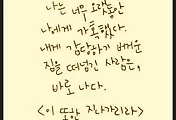 나는 너무 오랫동안
나에게 가혹했다.
내게 감당하기 버거운
짐을 떠넘긴 사람은,
바로 나다.
<이 또한 지나가리라>